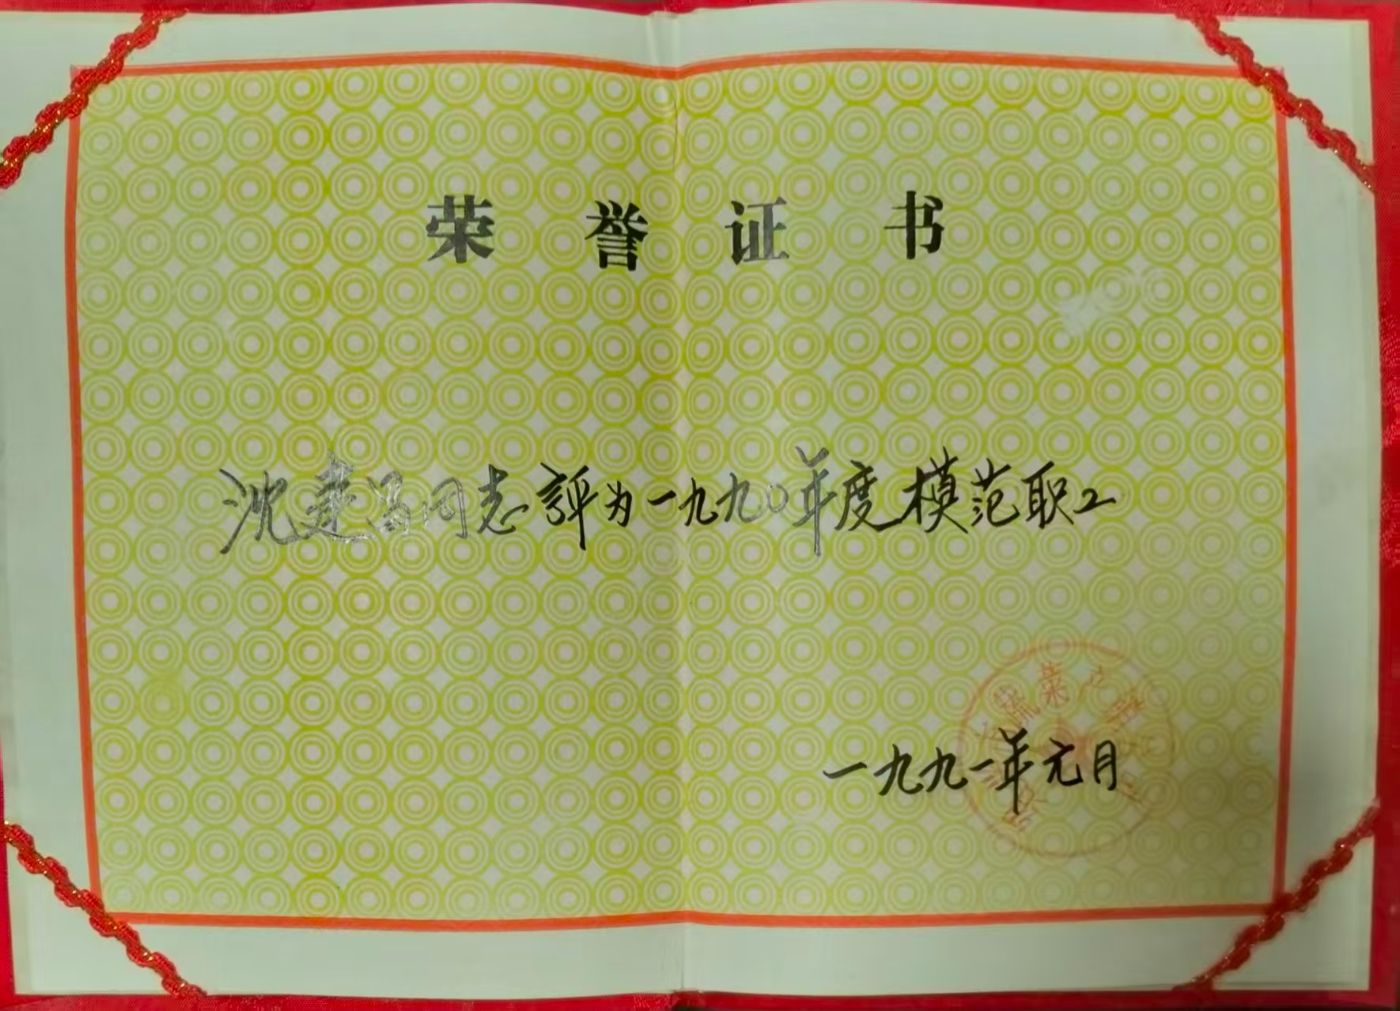 荣誉证书
沈建昌同志評为一九九〇年度模范职工
蔬菜
一九九一年元月